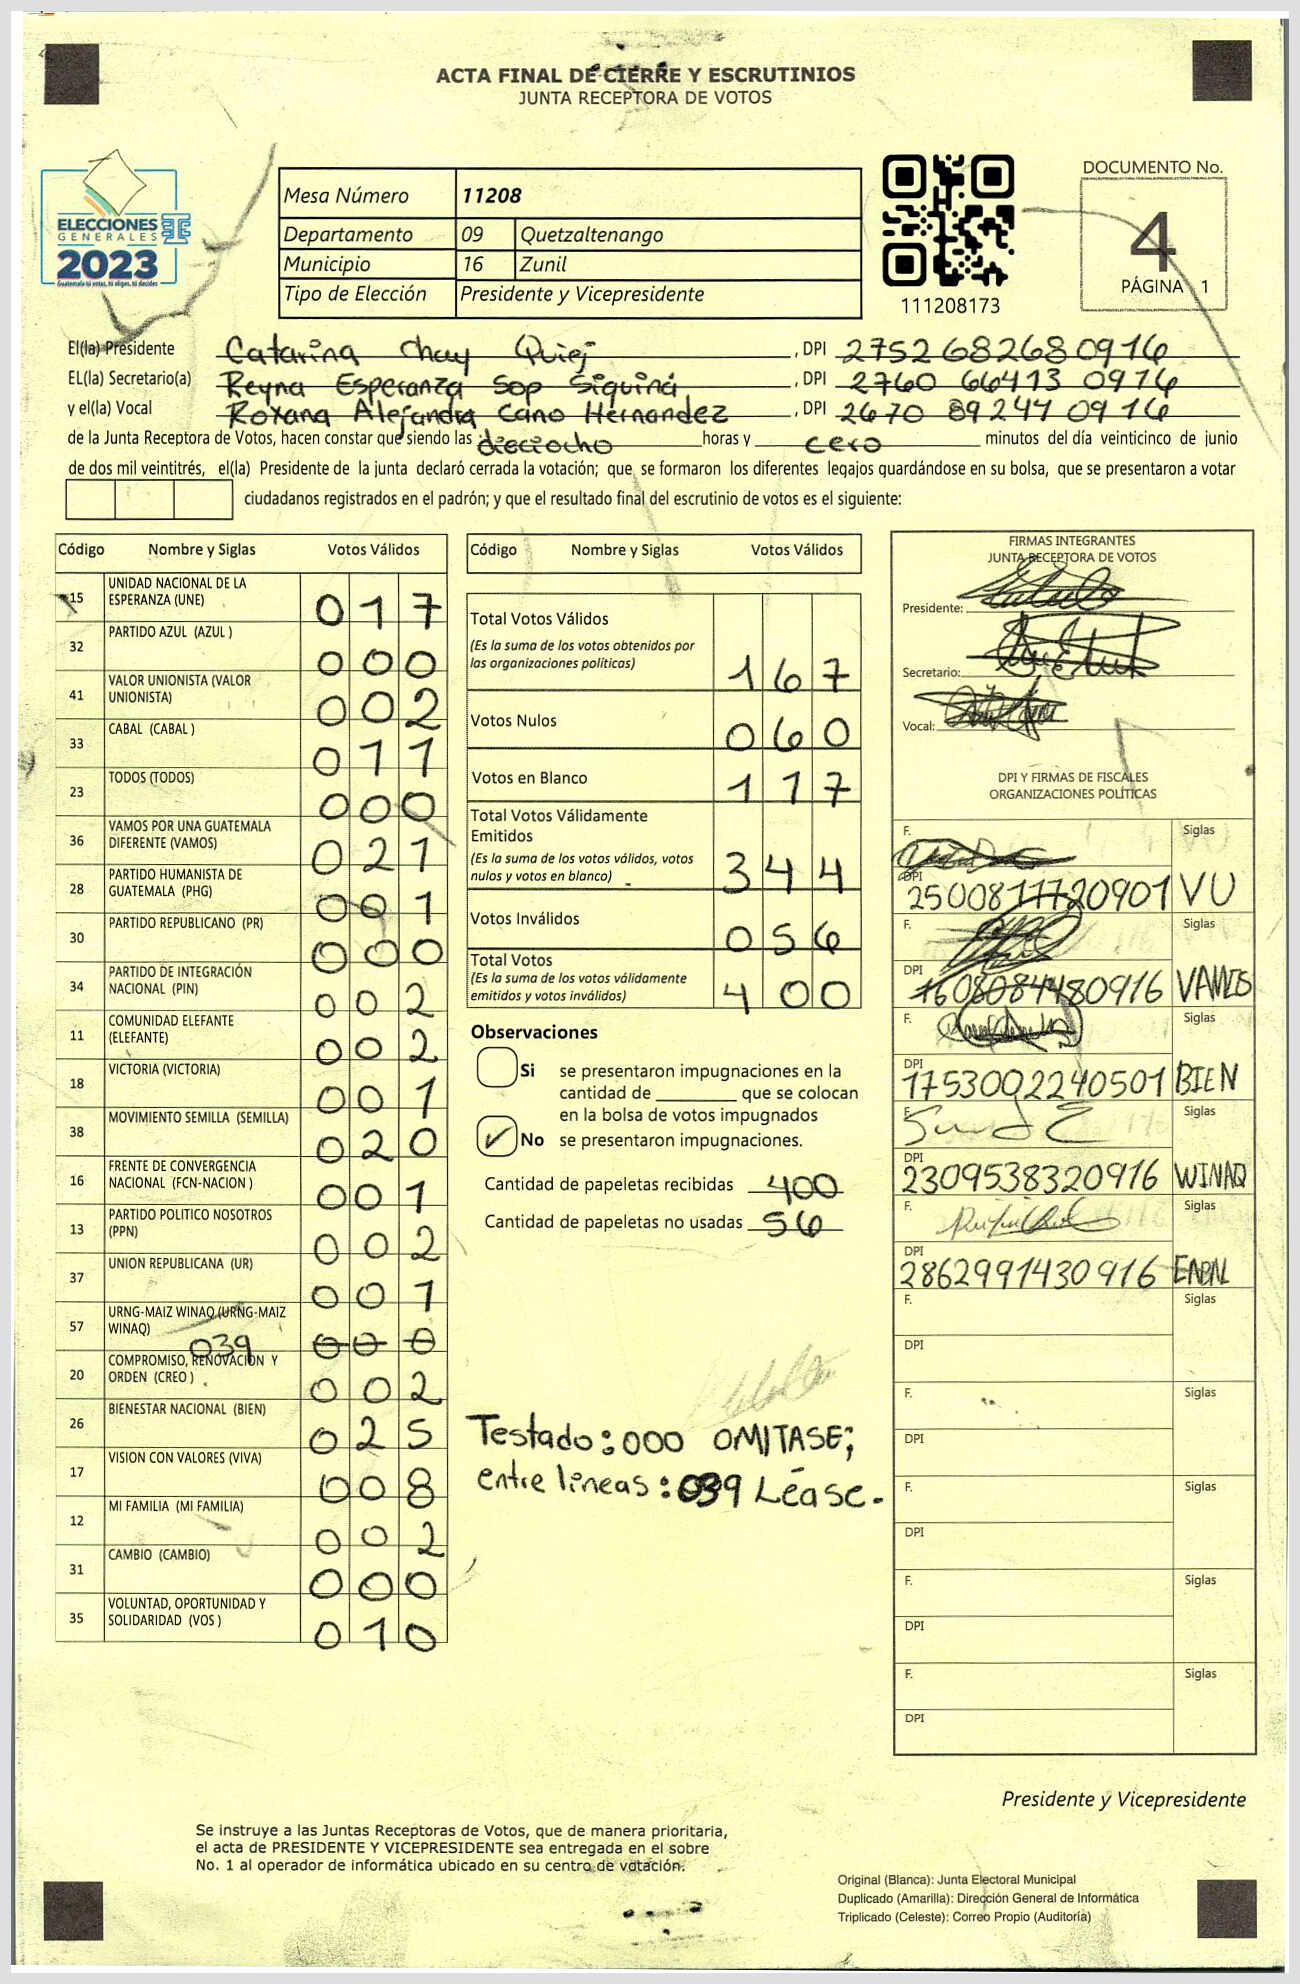 ACTA FINAL DE CIERRE Y ESCRUTINIOS
JUNTA RECEPTORA DE VOTOS
ELECCIONES
GENERALES
2023
Guatemala tú votas, tú eliges, tú decides
Mesa Número 11208
Departamento 09 Quetzaltenango
Municipio 16 Zunil
Tipo de Elección Presidente y Vicepresidente
111208173
DOCUMENTO No.
4
PÁGINA 1
El(la) Presidente Catarina Chay Quiej, DPI 2752682680916
EL(la) Secretario(a) Reyna Esperanza Sop Siquiná, DPI 2760 66413 0916
y el(la) Vocal Roxana Alejandra Cano Hernandez, DPI 2670 89244 0916
de la Junta Receptora de Votos, hacen constar que siendo las dieciocho horas y cero minutos del día veinticinco de junio
de dos mil veintitrés, el(la) Presidente de la junta declaró cerrada la votación; que se formaron los diferentes legajos guardándose en su bolsa, que se presentaron a votar
ciudadanos registrados en el padrón; y que el resultado final del escrutinio de votos es el siguiente:
Código Nombre y Siglas Votos Válidos
15 UNIDAD NACIONAL DE LA ESPERANZA (UNE) 017
32 PARTIDO AZUL (AZUL ) 000
41 VALOR UNIONISTA (VALOR UNIONISTA) 002
33 CABAL (CABAL ) 011
23 TODOS (TODOS) 000
36 VAMOS POR UNA GUATEMALA DIFERENTE (VAMOS) 021
28 PARTIDO HUMANISTA DE GUATEMALA (PHG) 001
30 PARTIDO REPUBLICANO (PR) 000
34 PARTIDO DE INTEGRACIÓN NACIONAL (PIN) 002
11 COMUNIDAD ELEFANTE (ELEFANTE) 002
18 VICTORIA (VICTORIA) 001
38 MOVIMIENTO SEMILLA (SEMILLA) 020
16 FRENTE DE CONVERGENCIA NACIONAL (FCN-NACION ) 001
13 PARTIDO POLITICO NOSOTROS (PPN) 002
37 UNION REPUBLICANA (UR) 001
57 URNG-MAIZ WINAQ (URNG-MAIZ WINAQ) 039 000
20 COMPROMISO, RENOVACIÓN Y ORDEN (CREO ) 002
26 BIENESTAR NACIONAL (BIEN) 025
17 VISION CON VALORES (VIVA) 008
12 MI FAMILIA (MI FAMILIA) 002
31 CAMBIO (CAMBIO) 000
35 VOLUNTAD, OPORTUNIDAD Y SOLIDARIDAD (VOS ) 010
Código Nombre y Siglas Votos Válidos
Total Votos Válidos 167
(Es la suma de los votos obtenidos por
las organizaciones políticas)
Votos Nulos 060
Votos en Blanco 117
Total Votos Válidamente
Emitidos 344
(Es la suma de los votos válidos, votos
nulos y votos en blanco)
Votos Inválidos 056
Total Votos 400
(Es la suma de los votos válidamente
emitidos y votos inválidos)
Observaciones
Si se presentaron impugnaciones en la
cantidad de ________ que se colocan
en la bolsa de votos impugnados
✓ No se presentaron impugnaciones.
Cantidad de papeletas recibidas 400
Cantidad de papeletas no usadas 56
Testado: 000 OMITASE;
entre lineas: 039 Léase.
FIRMAS INTEGRANTES
JUNTA RECEPTORA DE VOTOS
Presidente:
Secretario:
Vocal:
DPI Y FIRMAS DE FISCALES
ORGANIZACIONES POLÍTICAS
F. Siglas
DPI 2500811720901 VU
F. Siglas
DPI 1608084480916 VAMOS
F. Siglas
DPI 1753002240501 BIEN
F. Siglas
DPI 2309538320916 WINAQ
F. Siglas
DPI 2862991430916
F. Siglas
DPI
F. Siglas
DPI
F. Siglas
DPI
F. Siglas
DPI
F. Siglas
DPI
Presidente y Vicepresidente
Se instruye a las Juntas Receptoras de Votos, que de manera prioritaria,
el acta de PRESIDENTE Y VICEPRESIDENTE sea entregada en el sobre
No. 1 al operador de informática ubicado en su centro de votación.
Original (Blanca): Junta Electoral Municipal
Duplicado (Amarilla): Dirección General de Informática
Triplicado (Celeste): Correo Propio (Auditoría)